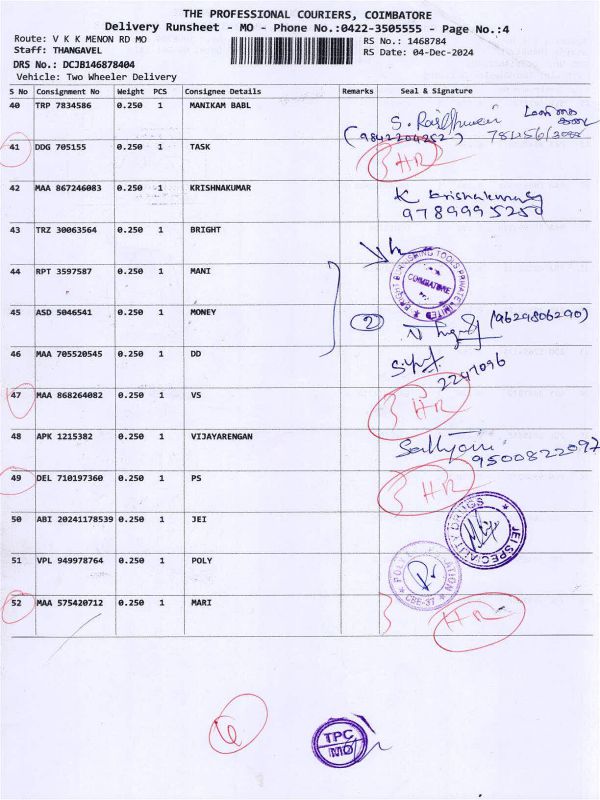 THE PROFESSIONAL COURIERS, COIMBATORE
Delivery Runsheet - MO - Phone No.:0422-3505555 - Page No.:4
Route: V K K MENON RD MO RS No.: 1468784
Staff: THANGAVEL RS Date: 04-Dec-2024
DRS No.: DCJB146878404
Vehicle: Two Wheeler Delivery
S No Consignment No Weight PCS Consignee Details Remarks Seal & Signature
40 TRP 7834586 0.250 1 MANIKAM BABL
(9842204252)
41 DDG 705155 0.250 1 TASK HR
42 MAA 867246083 0.250 1 KRISHNAKUMAR K Krishnakumar
9789995250
43 TRZ 30063564 0.250 1 BRIGHT
44 RPT 3597587 0.250 1 MANI BRIGHT BURNISHING TOOLS PRIVATE LIMITED COIMBATORE
45 ASD 5046541 0.250 1 MONEY 2 (9629806290)
46 MAA 705520545 0.250 1 DD 2247096
47 MAA 868264082 0.250 1 VS HR
48 APK 1215382 0.250 1 VIJAYARENGAN 9500822097
49 DEL 710197360 0.250 1 PS HR
50 ABI 20241178539 0.250 1 JEI JEI SPECIALITY DRUGS
51 VPL 949978764 0.250 1 POLY CBE-37
52 MAA 575420712 0.250 1 MARI HR
6
TPC
MO